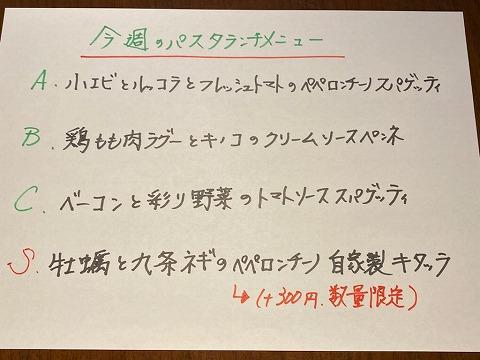 今週のパスタランチメニュー
A. 小エビとルッコラとフレッシュトマトのペペロンチーノスパゲッティ
B. 鶏もも肉ラグーとキノコのクリームソースペンネ
C. ベーコンと彩り野菜のトマトソーススパゲッティ
S. 牡蠣と九条ネギのペペロンチーノ 自家製キタッラ
↳(+300円.数量限定)